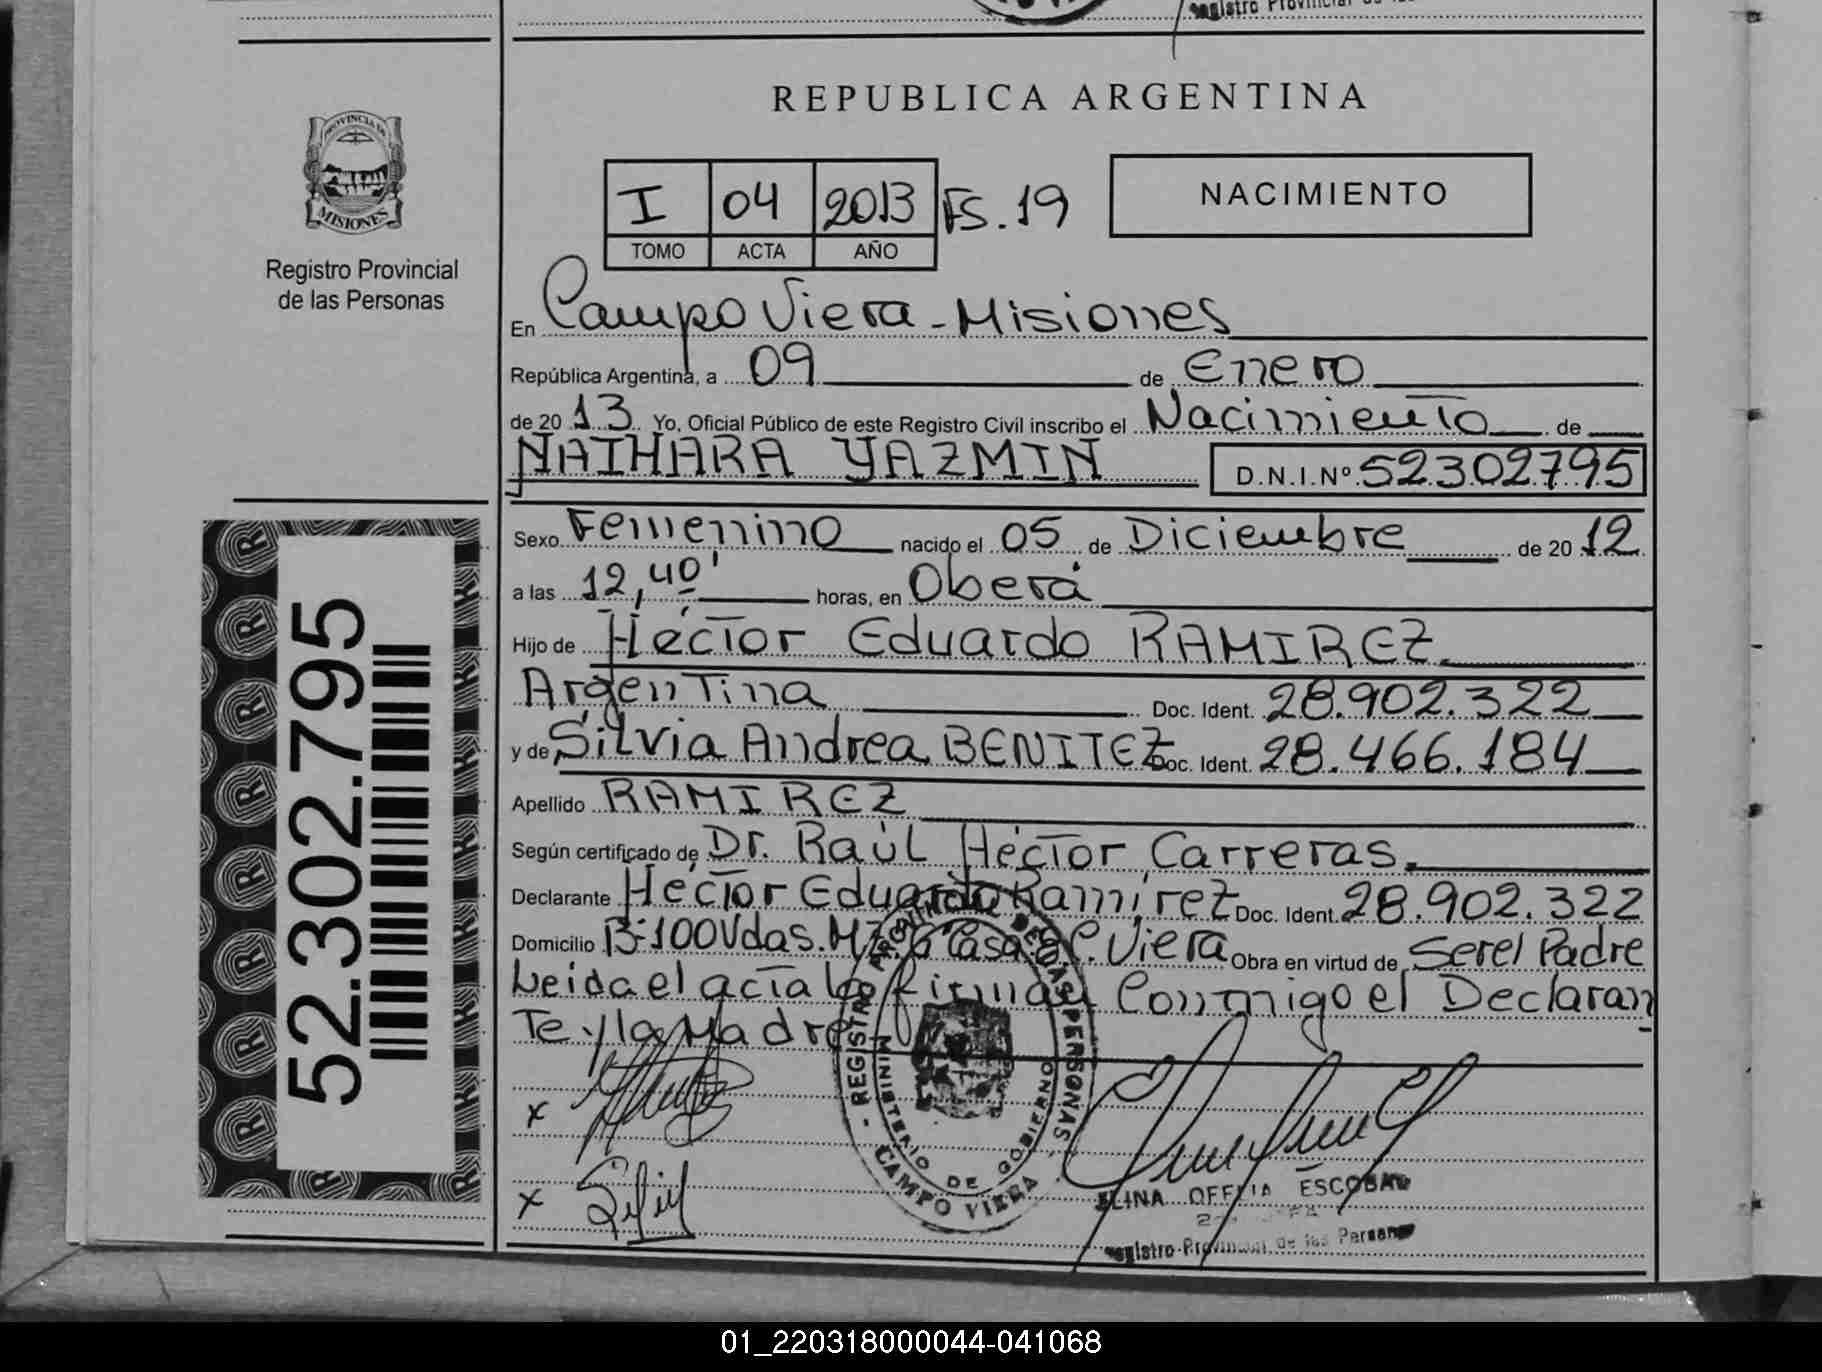 REPUBLICA ARGENTINA
PROVINCIA DE
MISIONES
Registro Provincial
de las Personas
I 04 2013 FS. 19
TOMO ACTA AÑO
NACIMIENTO
En Campo Viera - Misiones
República Argentina, a 09 de Enero
de 20 13 Yo, Oficial Público de este Registro Civil inscribo el Nacimiento de
NAIHARA YAZMIN D.N.I.Nº 52302795
Sexo Femenino nacido el 05 de Diciembre de 20 12
a las 12,40' horas, en Oberá
Hijo de Héctor Eduardo RAMIREZ
Argentina Doc. Ident. 28.902.322
y de Silvia Andrea BENITEZ Doc. Ident. 28.466.184
Apellido RAMIREZ
Según certificado de Dr. Raúl Héctor Carreras.
Declarante Héctor Eduardo Ramírez Doc. Ident. 28.902.322
Domicilio B-100Vdas. Mz. Casa 8 C. Viera Obra en virtud de Ser el Padre
Leida el acta la firman Conmigo el Declaran
Te y la Madre
x
x Silvi
REGISTRO PROVINCIAL DE LAS PERSONAS
MINISTERIO DE GOBIERNO
- CAMPO VIERA -
ELINA OFELIA ESCOBAR
Registro Provincial de las Personas
52.302.795
01_220318000044-041068